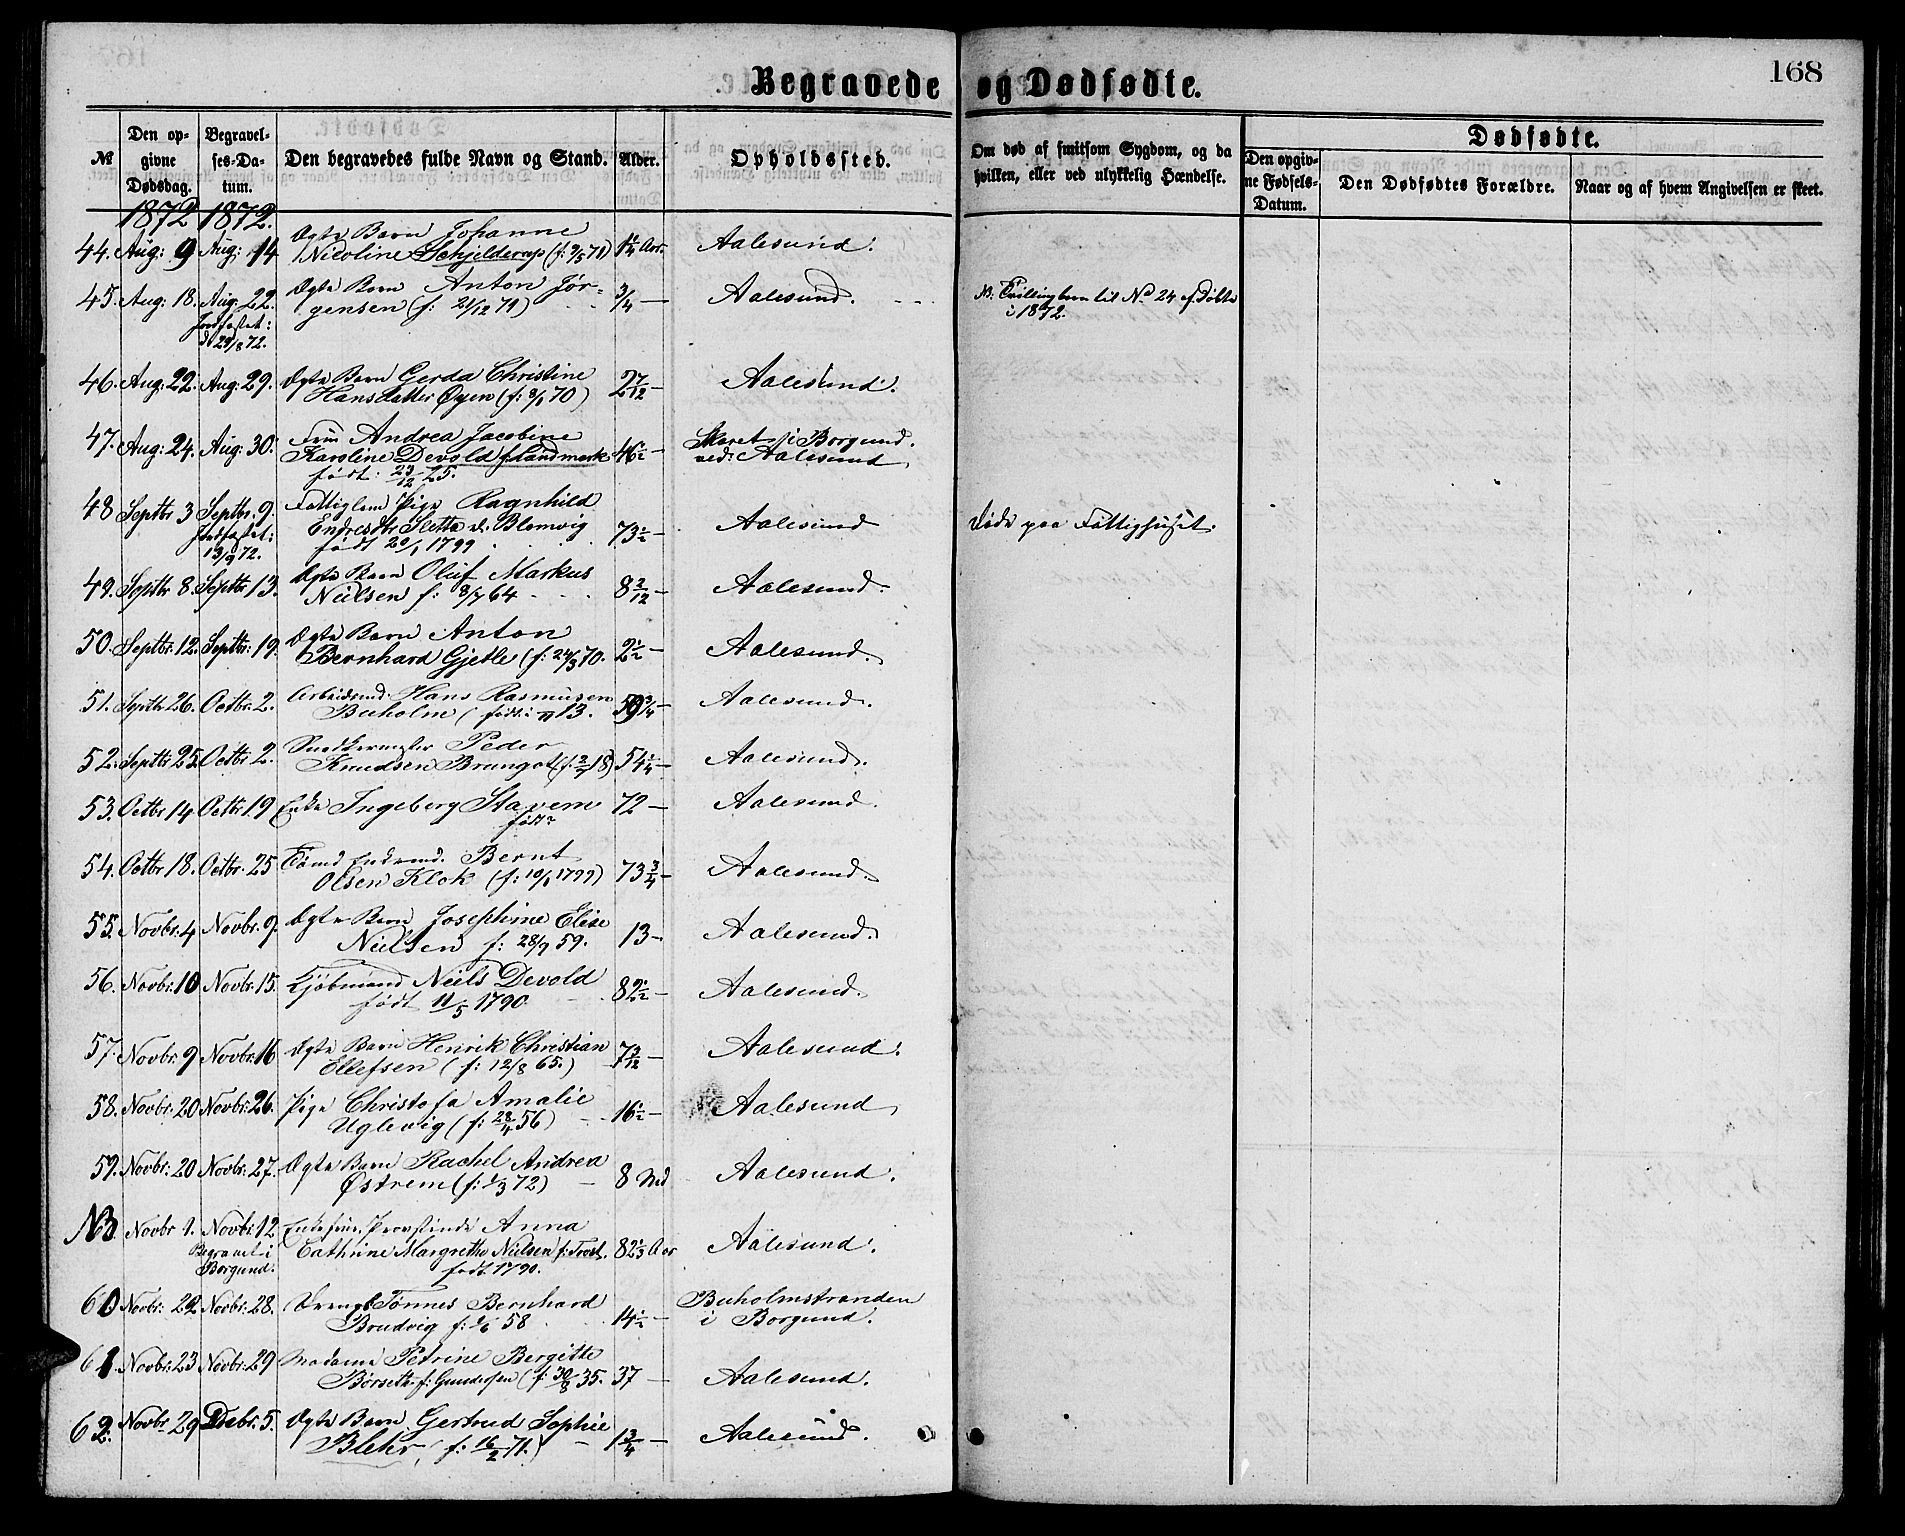 Begravede og Dødfødte.
168
№
Den opgivne Dødsdag.
Begravelses-Datum.
Den begravedes fulde Navn og Stand.
Alder.
Opholdssted.
Om død af smitsom Sygdom, og da hvilken, eller ved ulykkelig Hændelse.
Dødfødte.
Den opgivne Fødsels-Datum.
Den Dødfødtes Forældre.
Naar og af hvem Angivelsen er skeet.
1872 1872.
44. Aug: 9 Aug: 14 Ægte Barn Johanne
Nicoline Schjelderup (f: 9/5 71) 1 1/4 Aar. Aalesund.
45. Aug: 18. Aug: 22. Ægte Barn Anton Jør-
gensen (f: 21/12 71) 3/4 — Aalesund.
Jordfæstet:
d 29/8 72.
NB: Tvillingbarn til No 24 af Døbte
i 1872.
46. Aug: 22. Aug: 29. Ægte Barn Gerda Christine
Hansdatter Øyen (f: 8/1 70) 2 7/12 — Aalesund.
47. Aug: 24. Aug: 30. Frue Andrea Jacobine
Karoline Devold f. Landmark 46 1/2 — Skaret i Borgund.
ved Aalesund
født: 23/12 25.
48 Septbr 3 Septbr. 9. Fattiglem Pige Ragnhild
Endresdtr Sletta v: Blomvig 73 1/2 Aalesund
Jordfæstet:
13/9 72.
født 20/1 1799
Døde paa Fattighuset.
49. Septbr 8. Septbr 13. Ægte Barn Oluf Markus
Nielsen f: 8/7 64 8 2/12 — Aalesund.
50. Septbr. 12. Septbr: 19. Ægte Barn Anton
Bernhard Gjetle (f: 24/3 70. 2 1/2 — Aalesund.
51. Septbr 26. Octbr. 2. Arbeidsmd. Hans Rasmusen
Buholm (født: 13. 59 3/4 — Aalesund.
52. Septbr 25. Octbr 2. Snedkermester Peder
Knudsen Brungot (f. 18) 54 1/4 — Aalesund.
53. Octbr 14 Octbr 19 Enke Ingeborg Stavem 72 — Aalesund.
født?
54. Octbr 18. Octbr. 25 Tømd Enkemd. Bernt
Olsen Klok (f: 10/1 1799) 73 3/4 — Aalesund.
55. Novbr. 4 Novbr. 9. Ægte Barn Josephine Elise
Nielsen f: 28/9 59. 13 — Aalesund.
56. Novbr. 10 Novbr. 15. Kjøbmand Niels Devold
født 11/5 1790 82 1/2 — Aalesund.
57. Novbr. 9 Novbr. 16 Ægte Barn Henrik Christian
Ellefsen (f: 12/8 65.) 7 3/12 — Aalesund.
58. Novbr. 20 Novbr. 26. Pige Christofa Amalie
Uglevig (f: 28/4 56) 16 1/2 — Aalesund
59. Novbr: 20 Novbr. 27. Ægte Barn Rachel Andrea
Østrem (f: 1/3 72) — 8 Md Aalesund.
NB. Novbr 1. Novbr. 12 Enkefrue, Provstinde Anna
Cathrine Margrethe Nielsen f: Frost. 82 1/3 Aar Aalesund.
Begravet i
Borgund.
født 1790.
60 Novbr: 22. Novbr. 28. Dreng Tønnes Bernhard
Brudvig f: 1/6 58 14 1/2 — Buholmstranden
i Borgund.
61. Novbr: 23 Novbr: 29 Madame Petrine Bergitte
Børseth f: Gundersen (f: 30/8 35. 37 — Aalesund.
62. Novbr. 29 Decbr. 5. Ægte Barn Gertrud Sophie
Blehr, (f: 16/2 71.) — 1 3/4 — Aalesund.